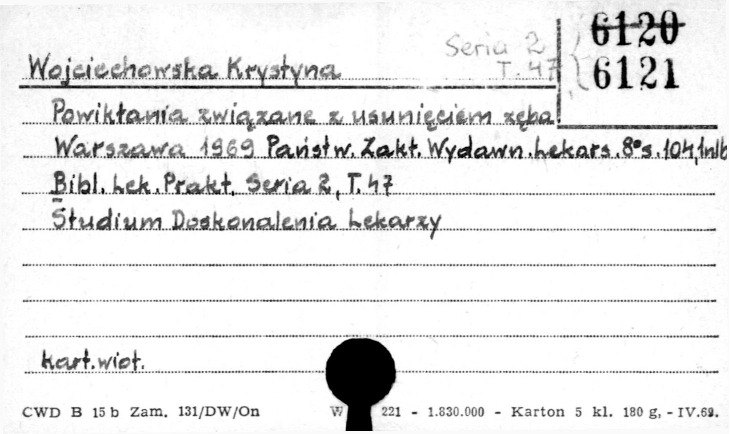 Seria 2 6120
Wojciechowska Krystyna T. 47 6121
Powikłania związane z usunięciem zęba
Warszawa 1969 Państw. Zakt. Wydawn. Lekars. 8° s. 104, 1nlb
Bibl. Lek. Prakt. Seria 2, T. 47
Studium Doskonalenia Lekarzy
kart. wiot.
CWD B 15 b Zam. 131/DW/On W 221 - 1.830.000 - Karton 5 kl. 180 g, - IV.69.